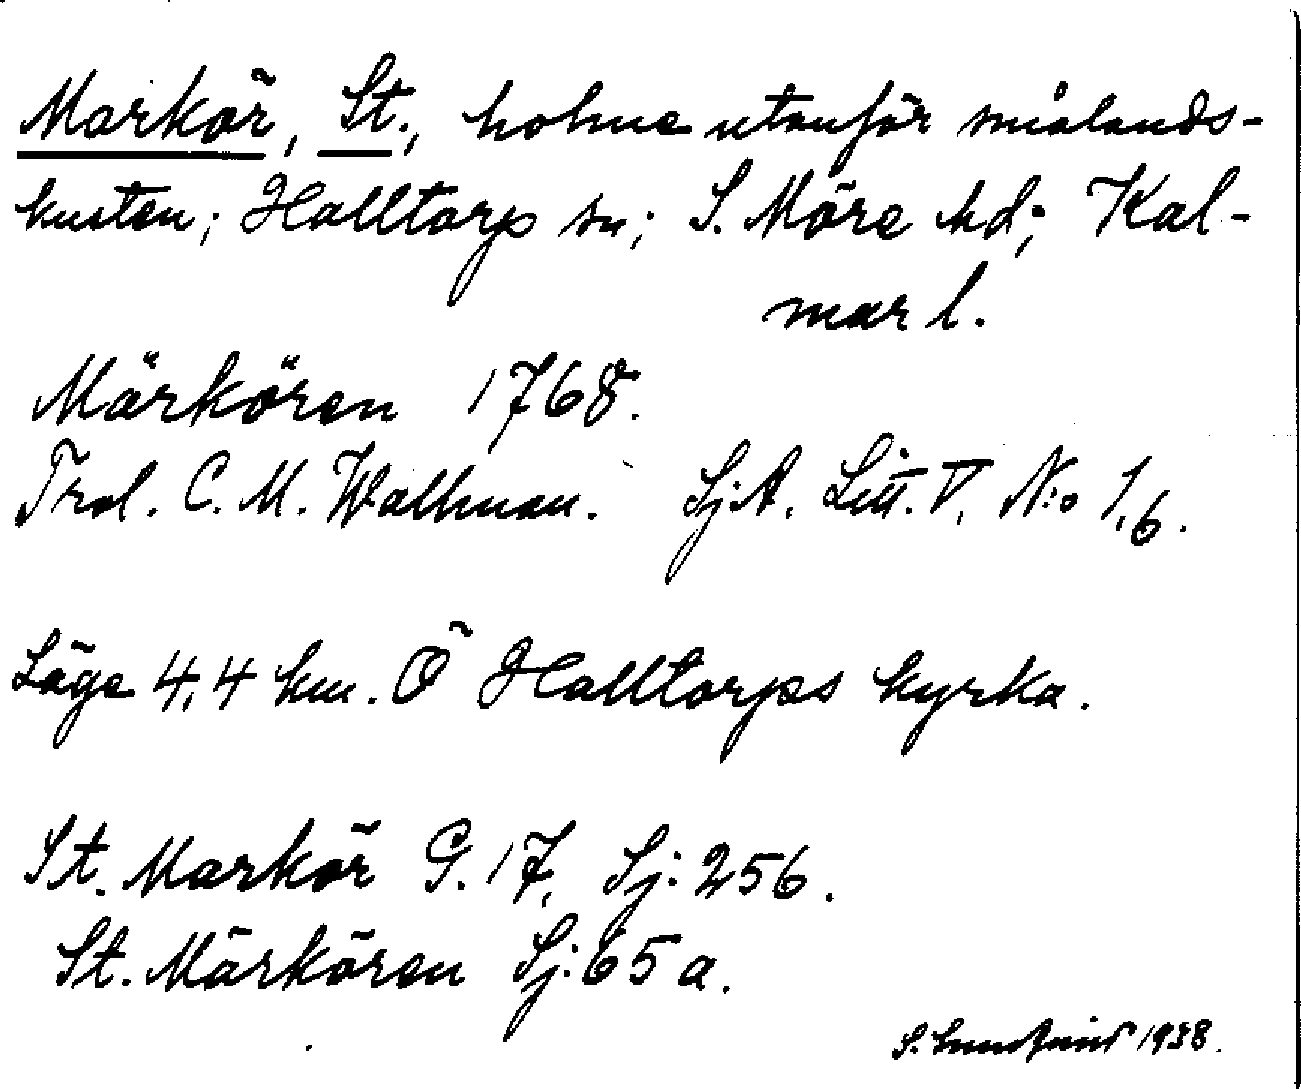 Markör, St., holme utanför smålands-
kusten; Halltorp sn; S. Möre hd; Kal-
mar l.
Märkören 1768.
Trol. C. M. Wallman. Sj.A. Litt. V. N:o 1,6.
Läge 4,4 km. Ö Halltorps kyrka.
St. Markör G. 17, Sj: 256.
St. Märkören Sj: 65 a.
S. 1938.